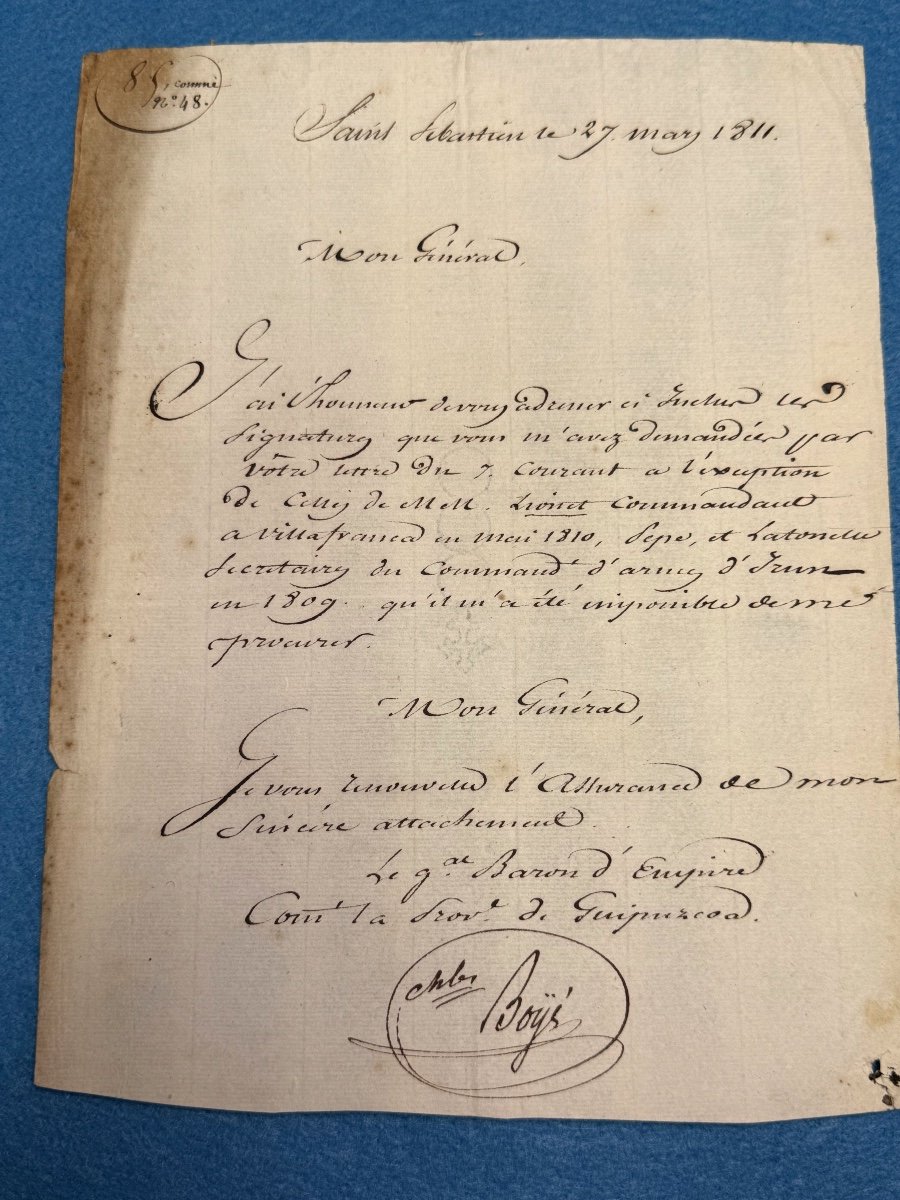 85, comme
n.° 48.
Saint Sebastien le 27. mars 1811.
Mon Général,
J'ai l'honneur de vous adresser ci Inclus les
signatures que vous m'avez demandées par
vôtre lettre du 7. courant a l'éxception
de Celles de MM. Lionet Commandant
a Villafranca en mai 1810, Pepe, et Latorrette
Secretaires du Command.t d'armes d'Irun
en 1809. qu'il m'a été impossible de me
procurer.
Mon Général,
Je vous renouvelle l'Assurance de mon
sincère attachement.
Le g.al Baron d'Empire
Com.t la Prov.e de Guipuzcoa.
Boyé